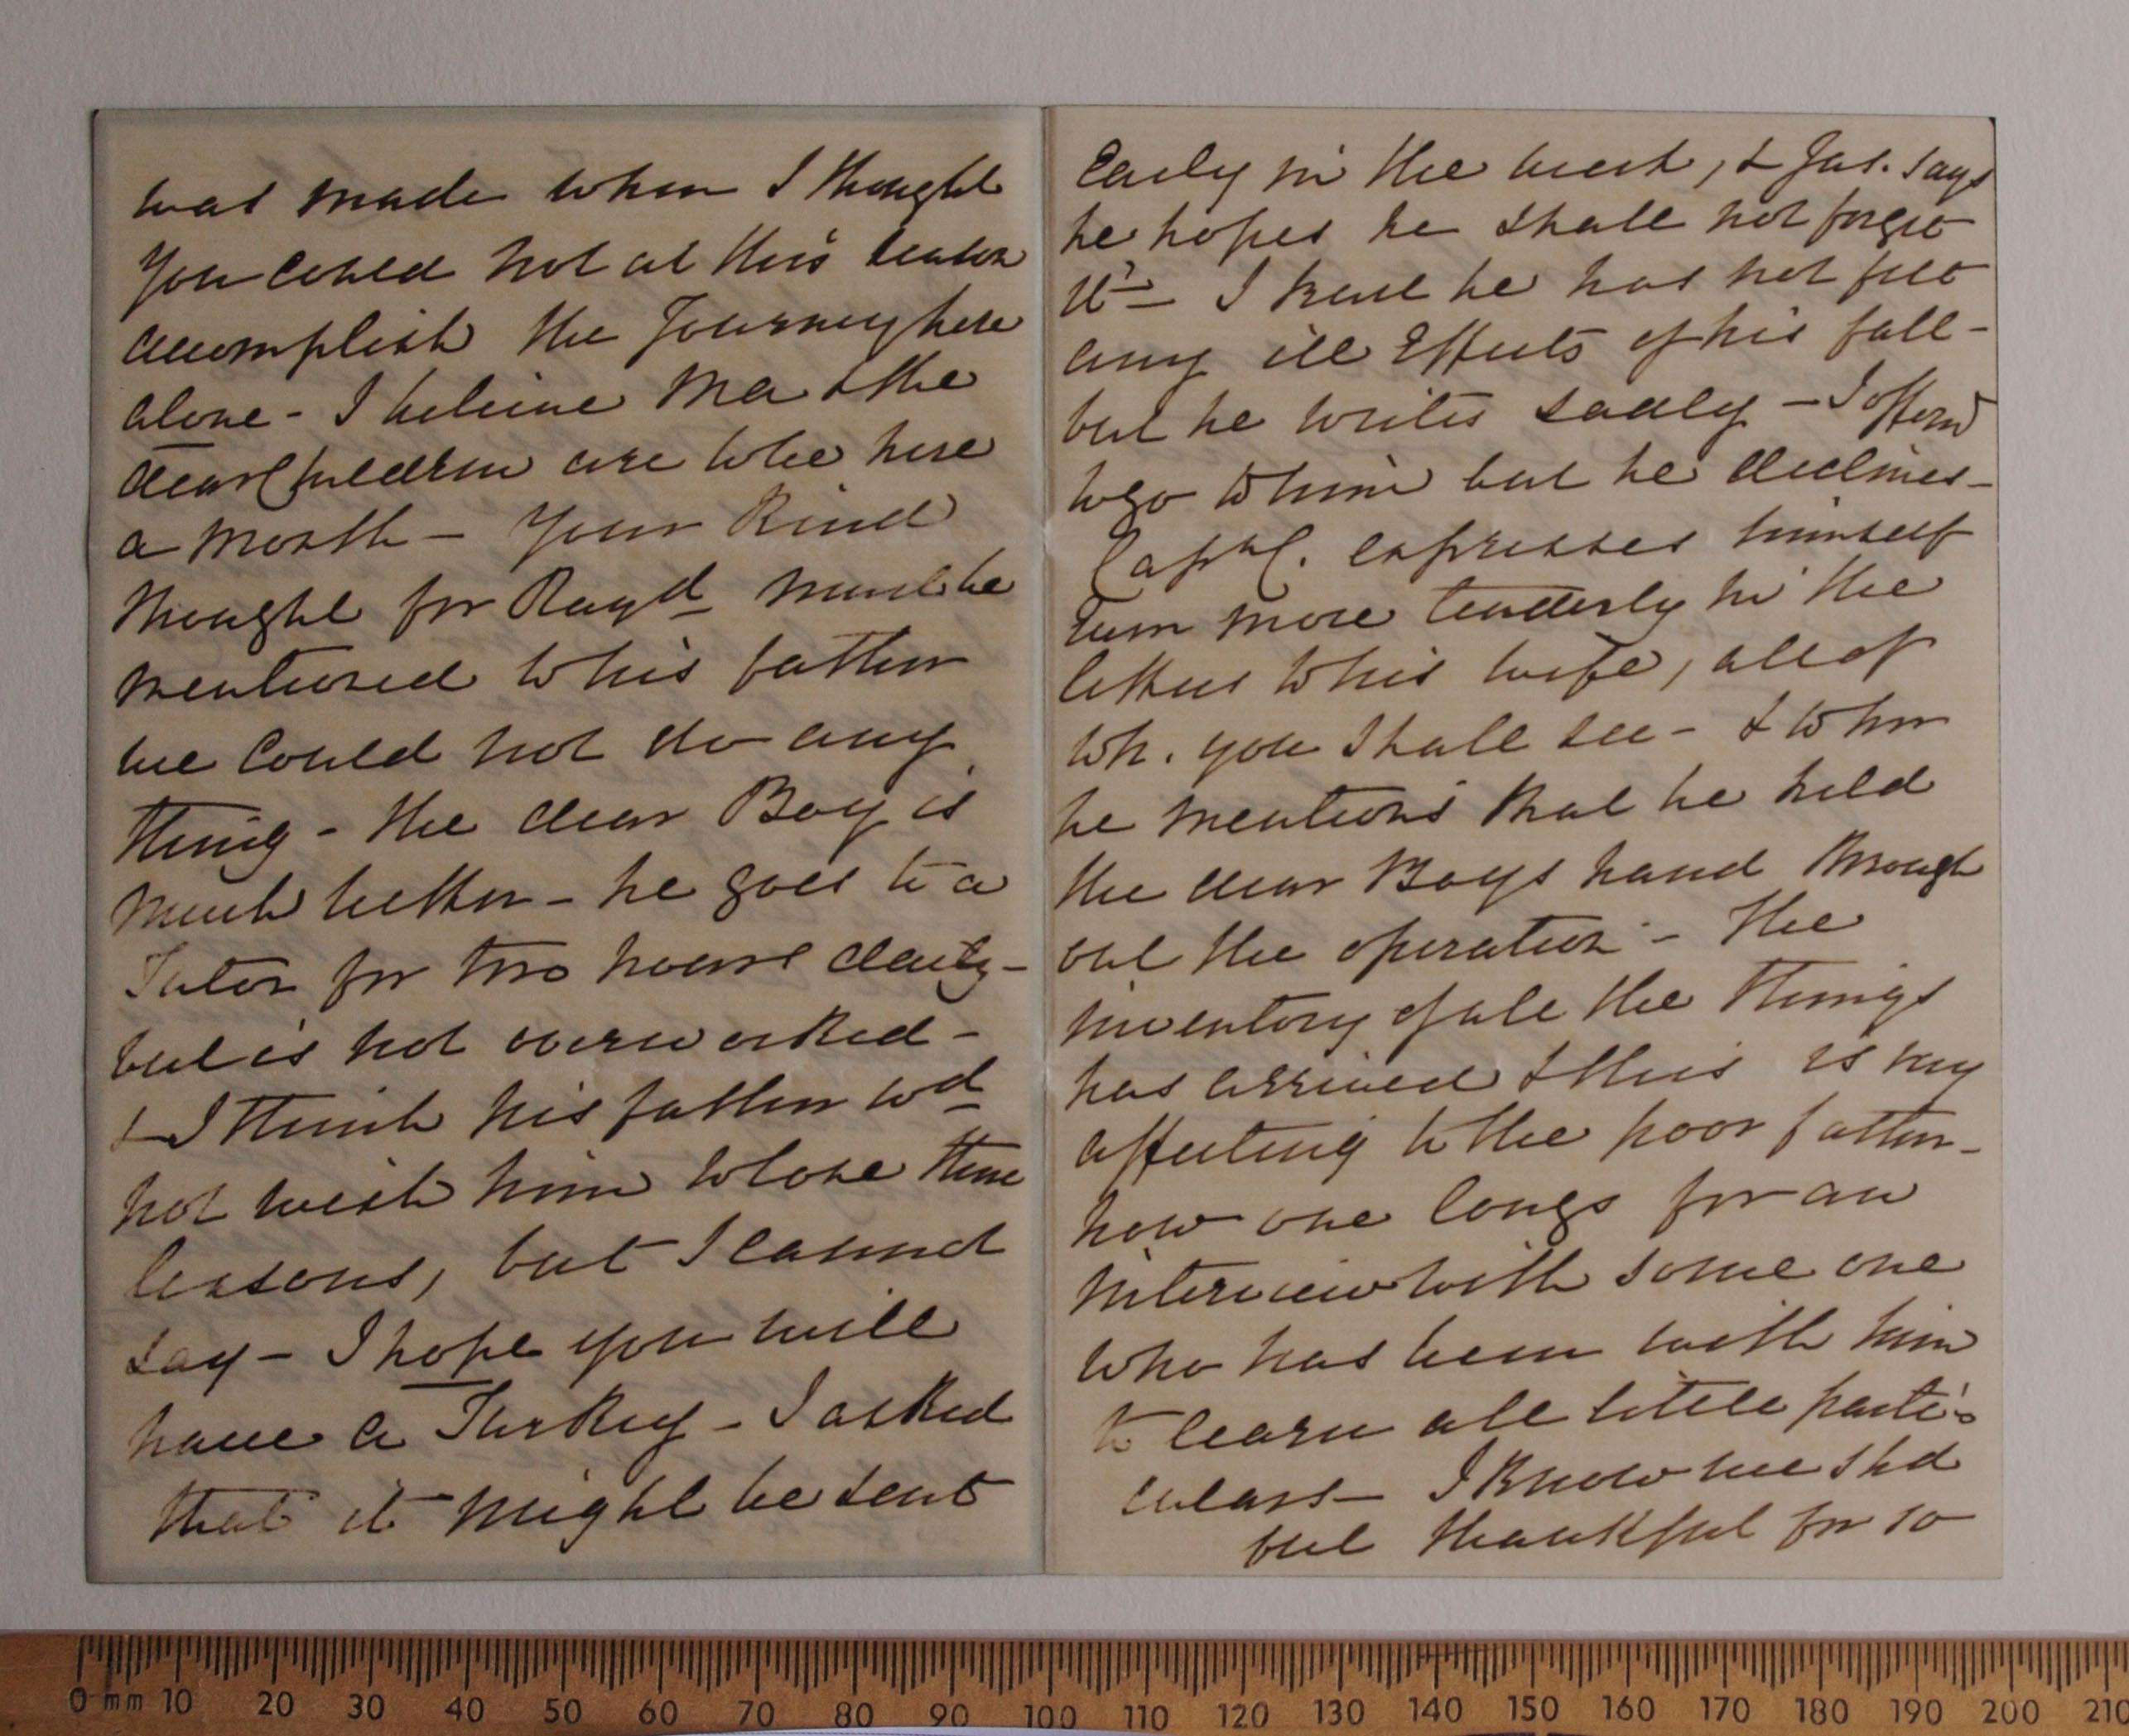 was made when I thought
you could not at this season
accomplish the Journey here
alone - I believe Ma & the
dear Children are to be here
a month - Your Kind
thought for Rayd must be
mentioned to his father
we could not do any
thing - the dear Boy is
much better - he goes to a
Tutor for two hours daily -
but is not overworked -
& I think his father wd
not wish him to lose time
lessons, but I cannot
say - I hope you will
have a Turkey - I asked
that it might be sent
Early in the week, & Jas. says
he hopes he shall not forget
it - I trust he has not felt
any ill Effects of his fall -
but he writes sadly - I offered
to go to him but he declines -
Capt C. expresses himself
Even more tenderly in the
letters to his wife, all of
wh. you shall see - & to her
he mentions that he held
the dear Boys hand through
out the operation - The
inventory of all the things
has arrived & this is very
affecting to the poor father -
how one longs for an
interview with some one
who has been with him
to learn all little parti-
culars - I Know we shd
feel thankful for so
0 mm 10 20 30 40 50 60 70 80 90 100 110 120 130 140 150 160 170 180 190 200 210